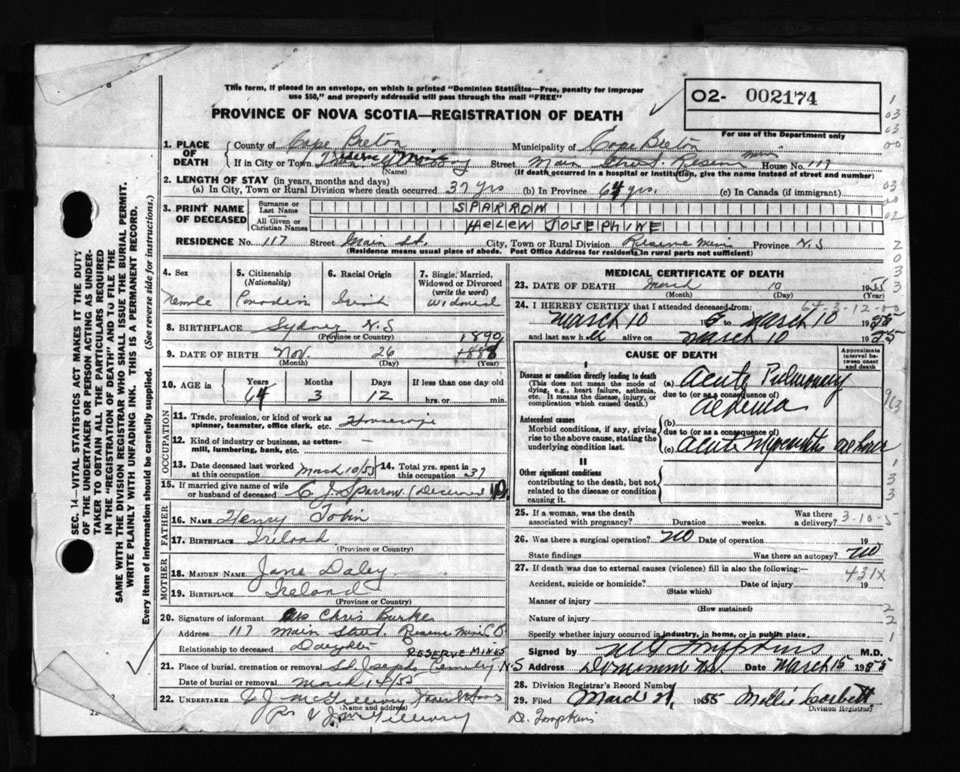 This form, if placed in an envelope, on which is printed "Dominion Statistics—Free, penalty for improper
use $50," and properly addressed will pass through the mail "FREE"
PROVINCE OF NOVA SCOTIA—REGISTRATION OF DEATH
O2- 002174
For use of the Department only
1. PLACE OF DEATH
County of Cape Breton Municipality of Cape Breton
If in City or Town Street Main Street. Reserve Mines House No. 117
(Name) (If death occurred in a hospital or institution, give the name instead of street and number)
2. LENGTH OF STAY (in years, months and days)
(a) In City, Town or Rural Division where death occurred 37 yrs (b) In Province 64 yrs. (c) In Canada (if immigrant)
3. PRINT NAME OF DECEASED
Surname or Last Name SPARROW
All Given or Christian Names HELEN JOSEPHINE
RESIDENCE No. 117 Street Main St. City, Town or Rural Division Reserve Mines Province N.S
(Residence means usual place of abode. Post Office Address for residents in rural parts not sufficient)
4. Sex
Female
5. Citizenship (Nationality)
Canadian
6. Racial Origin
Irish
7. Single, Married, Widowed or Divorced (write the word)
Widowed
8. BIRTHPLACE Sydney N.S
(Province or Country)
1890
9. DATE OF BIRTH Nov. 26
(Month) (Day) (Year)
10. AGE in Years Months Days If less than one day old
64 3 12 hrs. or min.
OCCUPATION
11. Trade, profession or kind of work as spinner, teamster, office clerk, etc. Housewife
12. Kind of industry or business, as cotton-mill, lumbering, bank, etc. —
13. Date deceased last worked at this occupation March 10/55 14. Total yrs. spent in this occupation 37
15. If married give name of wife or husband of deceased C. J. Sparrow (Deceased)
FATHER
16. NAME Henry Tobin
17. BIRTHPLACE Ireland
(Province or Country)
MOTHER
18. MAIDEN NAME Jane Daley
19. BIRTHPLACE Ireland
(Province or Country)
20. Signature of informant Mrs Chris Burke
Address 117 Main Street. Reserve Mines C B
Relationship to deceased Daughter
RESERVE MINES
21. Place of burial, cremation or removal St. Josephs Cemetery N.S
Date of burial or removal March 14/55
22. UNDERTAKER V J McGillivary
(Name and address)
Per V J McGillivary
MEDICAL CERTIFICATE OF DEATH
23. DATE OF DEATH March 10 1955
(Month) (Day) (Year)
64-3-12-
24. I HEREBY CERTIFY that I attended deceased from
March 10 to March 10 1955
and last saw h er March 10 1955
CAUSE OF DEATH
Approximate interval between onset and death
I
Disease or condition directly leading to death
(This does not mean the mode of dying, e.g., heart failure, asthenia, etc. It means the disease, injury, or complication which caused death.)
(a) Acute Pulmonary
due to (or as a consequence of)
Aedema
Antecedent causes
Morbid conditions, if any, giving rise to the above cause, stating the underlying condition last.
(b)
due to (or as a consequence of)
(c) Acute Myocarditis
II
Other significant conditions
contributing to the death, but not related to the disease or condition causing it.
25. If a woman, was the death associated with pregnancy? Duration weeks. Was there a delivery? 3-10-5
26. Was there a surgical operation? No Date of operation 19
State findings Was there an autopsy? No
27. If death was due to external causes (violence) fill in also the following:—
431X
Accident, suicide or homicide? Date of injury 19
(State which)
Manner of injury
(How sustained)
Nature of injury
Specify whether injury occurred in industry, in home, or in public place.
Signed by M G Tompkins M.D.
Address Dominion N.S. Date March 15 1955
28. Division Registrar's Record Number
29. Filed March 21, 1955 Millie Corbett
Division Registrar
D. Tompkins
SEC. 14—VITAL STATISTICS ACT MAKES IT THE DUTY
OF THE UNDERTAKER OR PERSON ACTING AS UNDER-
TAKER TO OBTAIN ALL THE PARTICULARS REQUIRED
IN THE "REGISTRATION OF DEATH" AND TO FILE THE
SAME WITH THE DIVISION REGISTRAR WHO SHALL ISSUE THE BURIAL PERMIT.
WRITE PLAINLY WITH UNFADING INK. THIS IS A PERMANENT RECORD.
Every item of information should be carefully supplied. (See reverse side for instructions.)